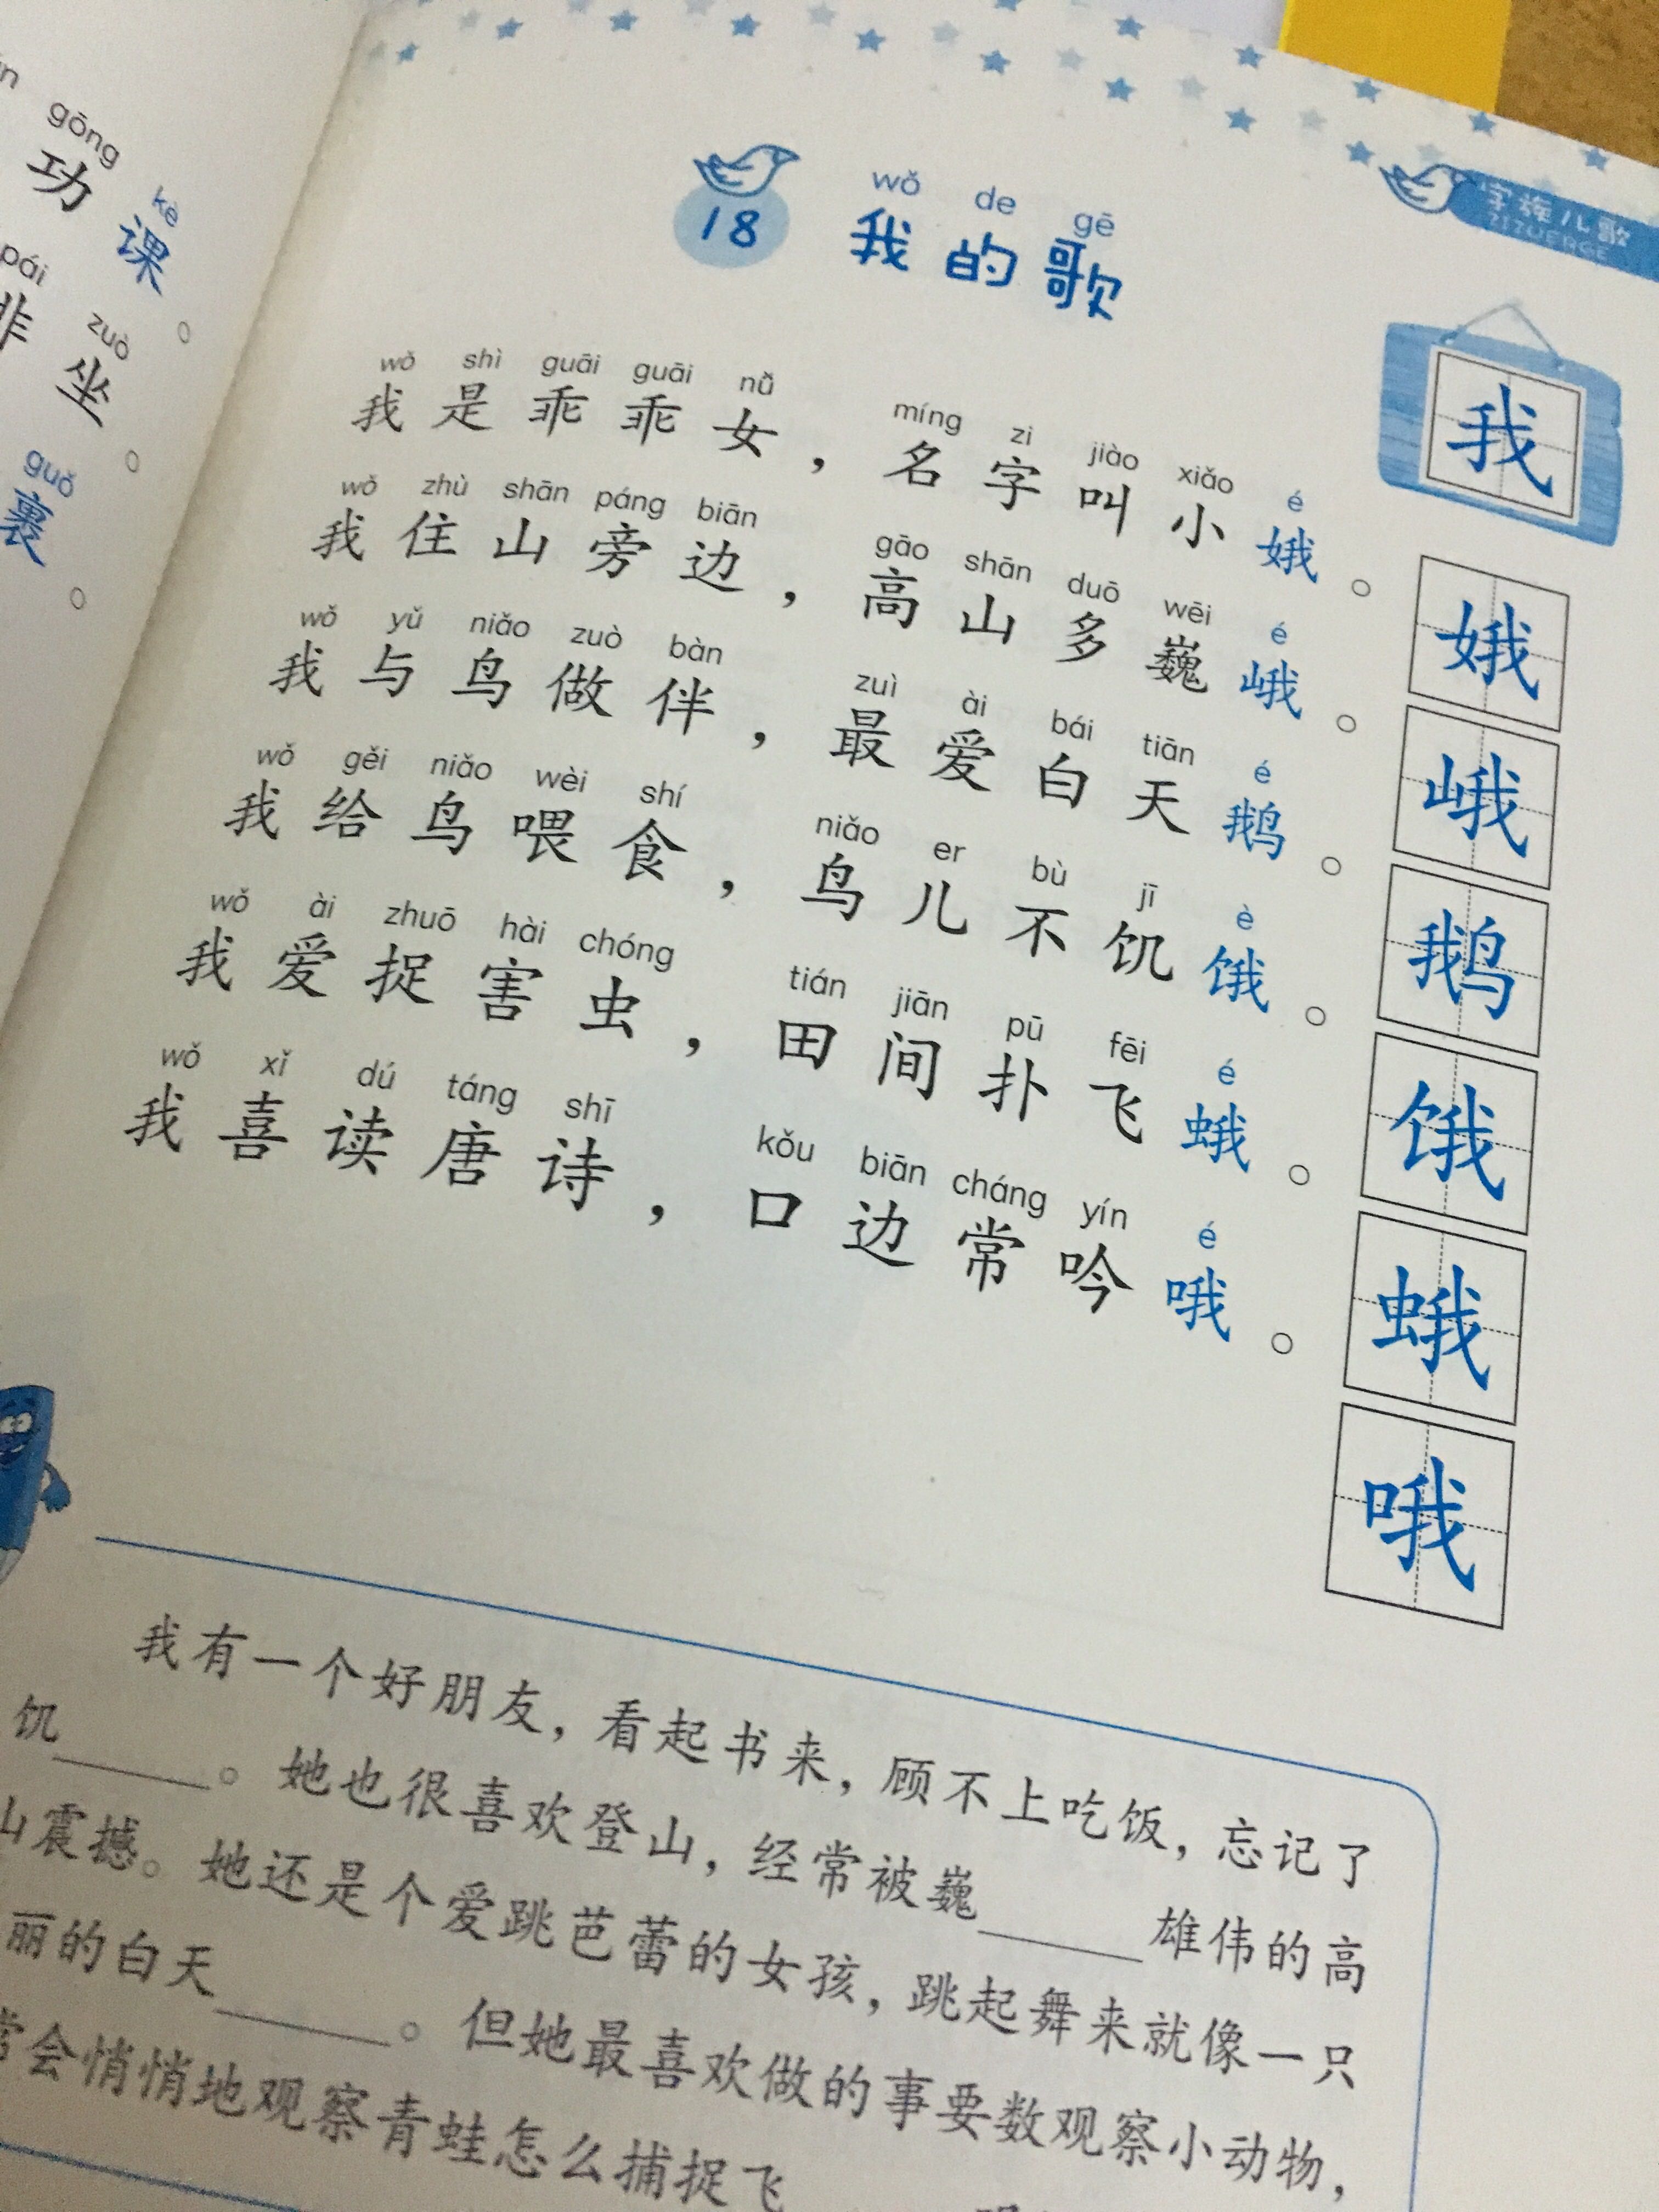 gōng kè
功课。
pái zuò
排坐。
guǒ
裹。
字族儿歌
ZIZUERGE
18
wǒ de gē
我的歌
wǒ shì guāi guāi nǚ míng zi jiào xiǎo é
我是乖乖女，名字叫小娥。
wǒ zhù shān páng biān gāo shān duō wēi é
我住山旁边，高山多巍峨。
wǒ yǔ niǎo zuò bàn zuì ài bái tiān é
我与鸟做伴，最爱白天鹅。
wǒ gěi niǎo wèi shí niǎo er bù jī è
我给鸟喂食，鸟儿不饥饿。
wǒ ài zhuō hài chóng tián jiān pū fēi é
我爱捉害虫，田间扑飞蛾。
wǒ xǐ dú táng shī kǒu biān cháng yín é
我喜读唐诗，口边常吟哦。
我
娥
峨
鹅
饿
蛾
哦
我有一个好朋友，看起书来，顾不上吃饭，忘记了
饥______。她也很喜欢登山，经常被巍______雄伟的高
山震撼。她还是个爱跳芭蕾的女孩，跳起舞来就像一只
丽的白天______。但她最喜欢做的事要数观察小动物，
常会悄悄地观察青蛙怎么捕捉飞